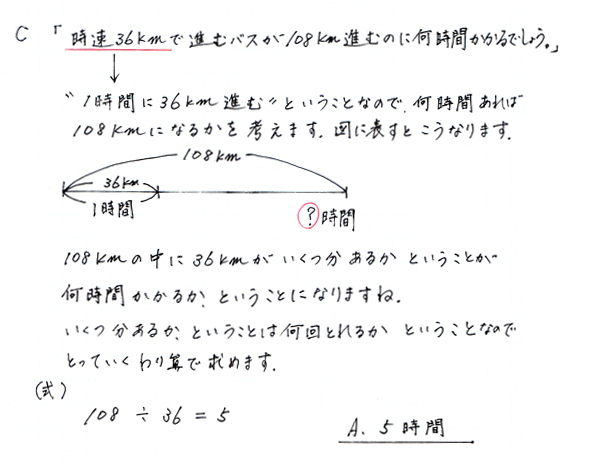 C 「時速36kmで進むバスが108km進むのに何時間かかるでしょう。」
"1時間に36km進む"ということなので、何時間あれば
108kmになるかを考えます。図に表すとこうなります。
108km
36km
1時間
?時間
108kmの中に36kmがいくつ分あるかということが
何時間かかるか、ということになりますね。
いくつ分あるか、ということは何回とれるかということなので
とっていくわり算で求めます。
(式)
108 ÷ 36 = 5
A. 5時間